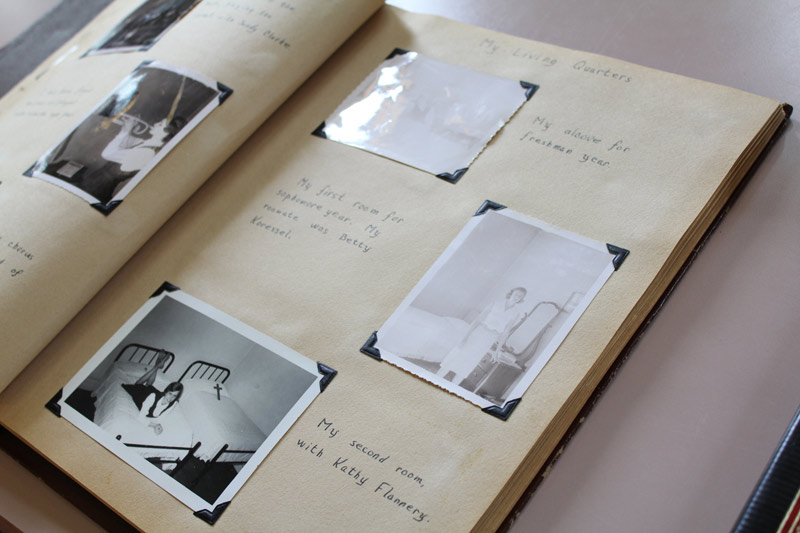 the
playing the
with Judy Clarke.
chorus
d of
My Living Quarters
My alcove for
freshman year.
My first room for
sophomore year. My
roomate was Betty
Koressel.
My second room,
with Kathy Flannery.